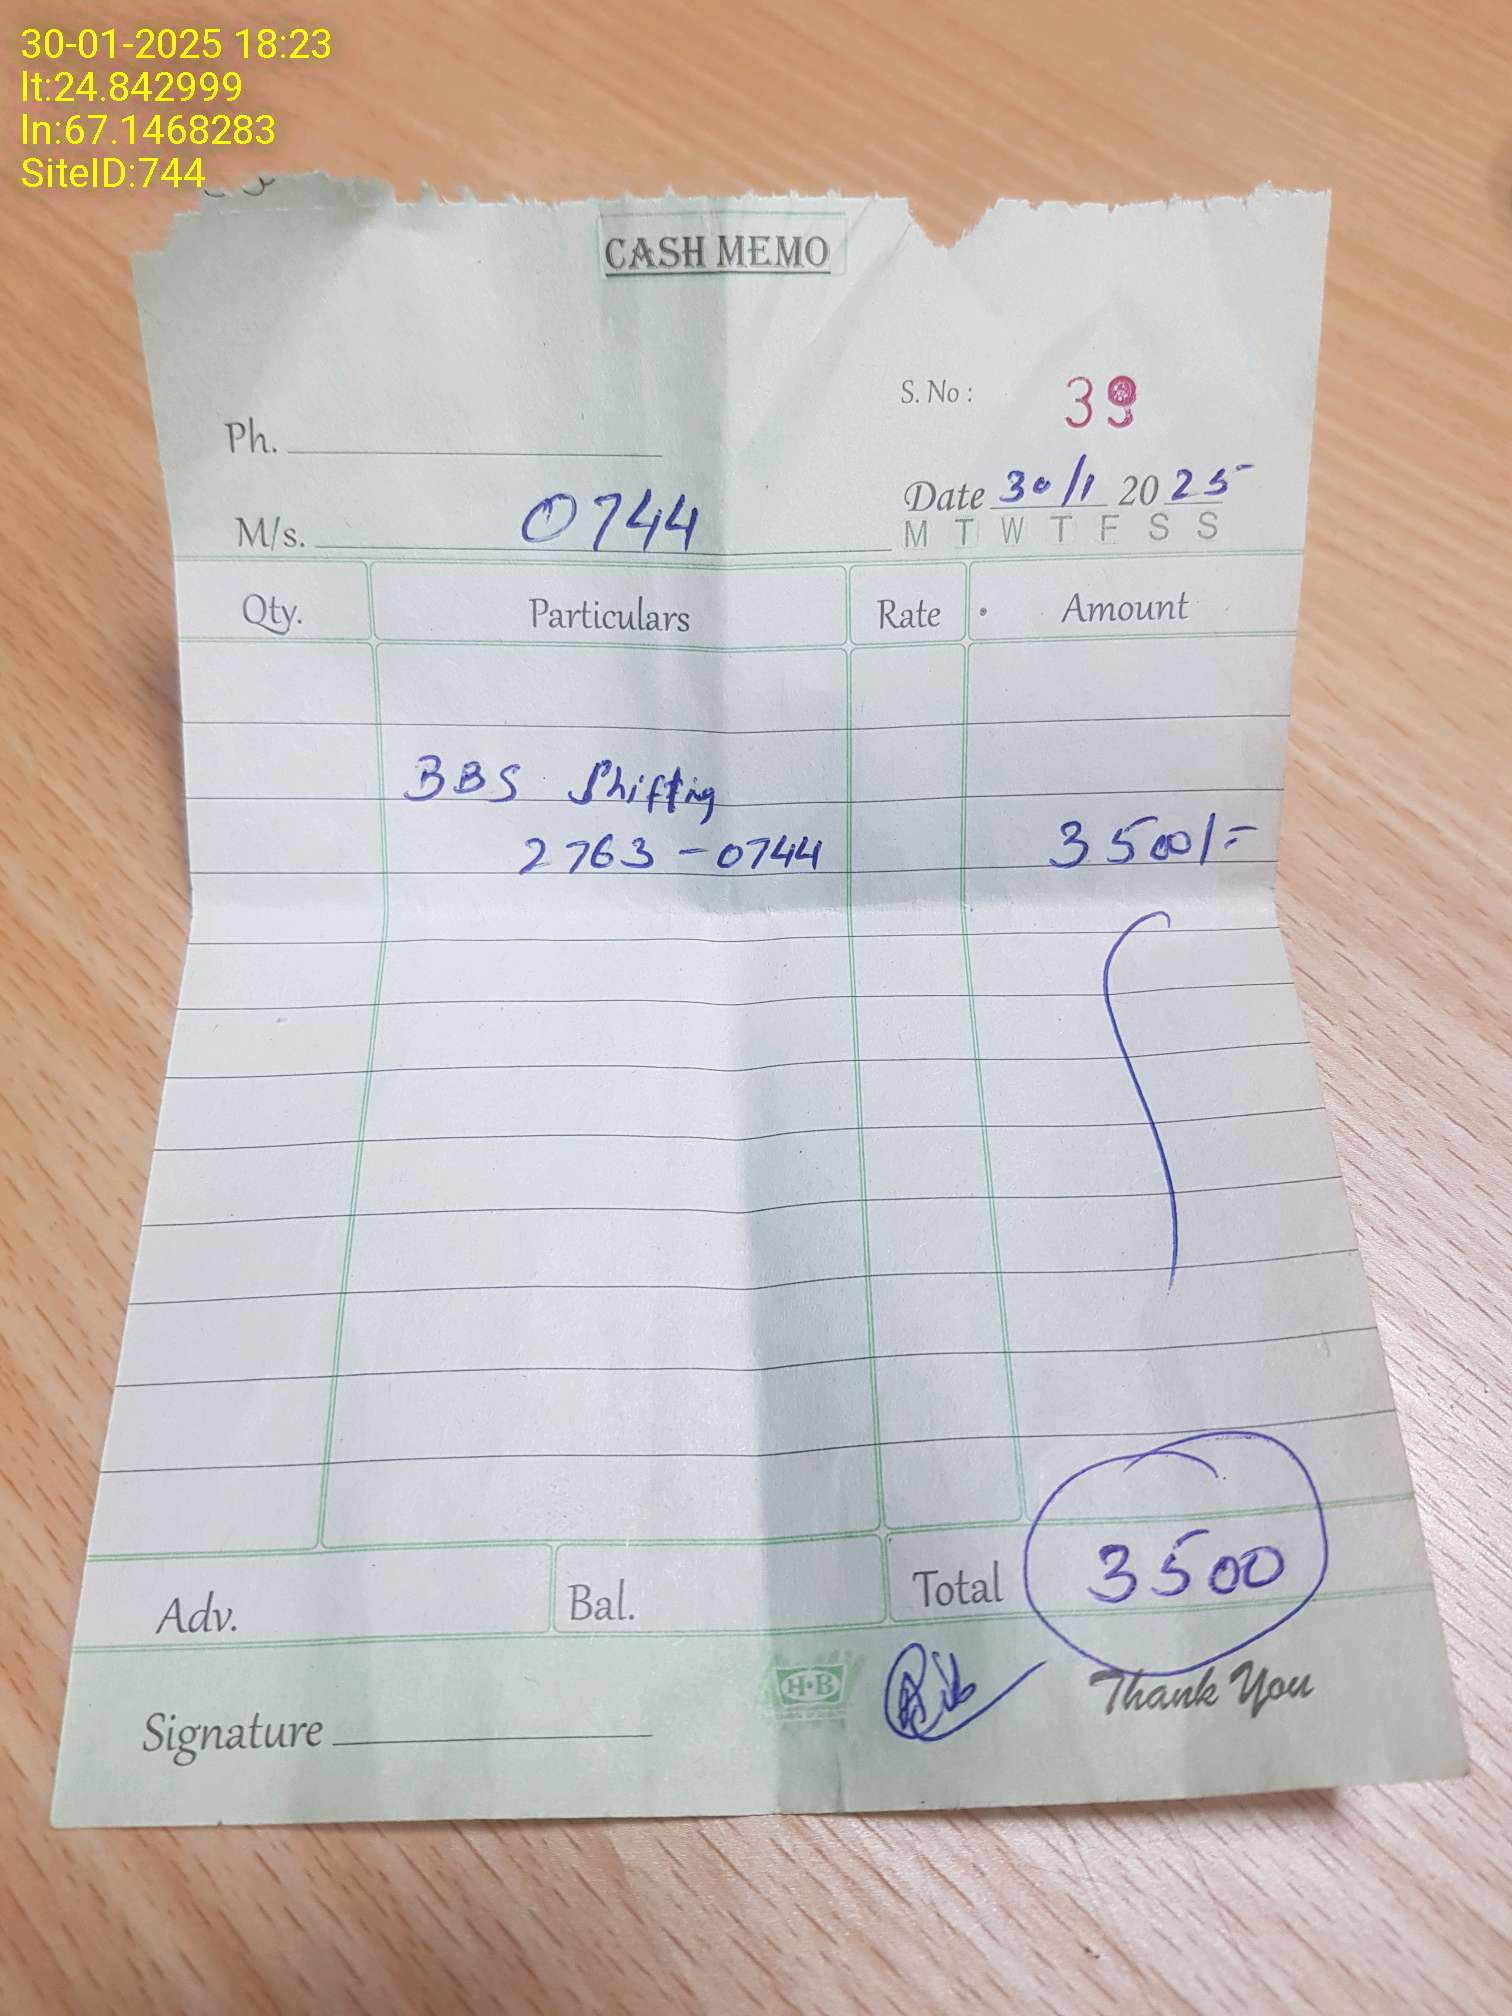 30-01-2025 18:23
lt:24.842999
ln:67.1468283
SiteID:744
CASH MEMO
S. No : 39
Ph.
Date 30/1 2025
M/s. 0744
M T W T F S S
Qty. Particulars Rate Amount
BBS Shifting
2763-0744 3500/=
Adv. Bal. Total 3500
H·B
Thank You
Signature